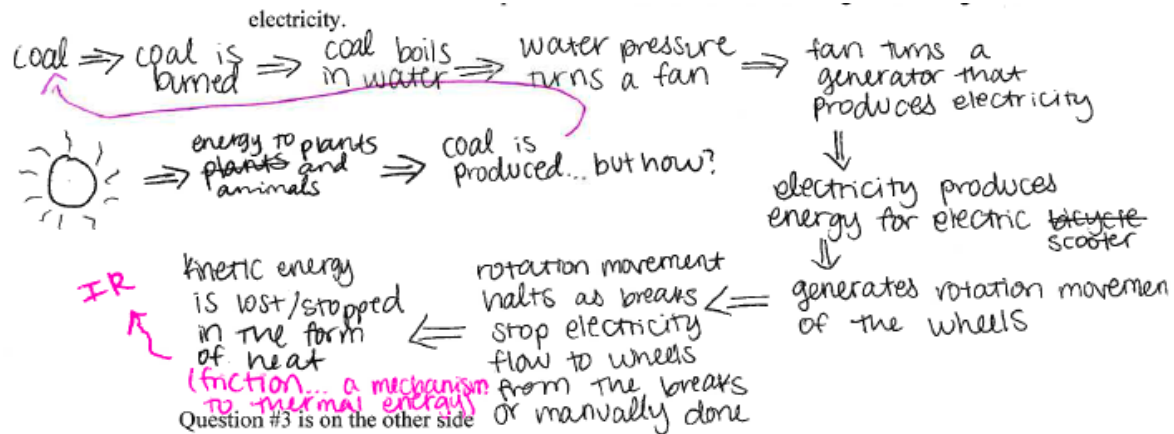 electricity.
coal ⇒ coal is burned ⇒ coal boils in water ⇒ water pressure turns a fan ⇒ fan turns a generator that produces electricity
⇒ energy to plants
plants and
animals
⇒ coal is
produced... but how?
⇓
electricity produces
energy for electric bicycle
scooter
⇓
generates rotation movemen
of the wheels
⇐
rotation movement
halts as breaks
stop electricity
flow to wheels
from the breaks
or manually done
⇐
kinetic energy
is lost/stopped
in the form
of heat
(friction... a mechanism
to thermal energy)
IR
Question #3 is on the other side